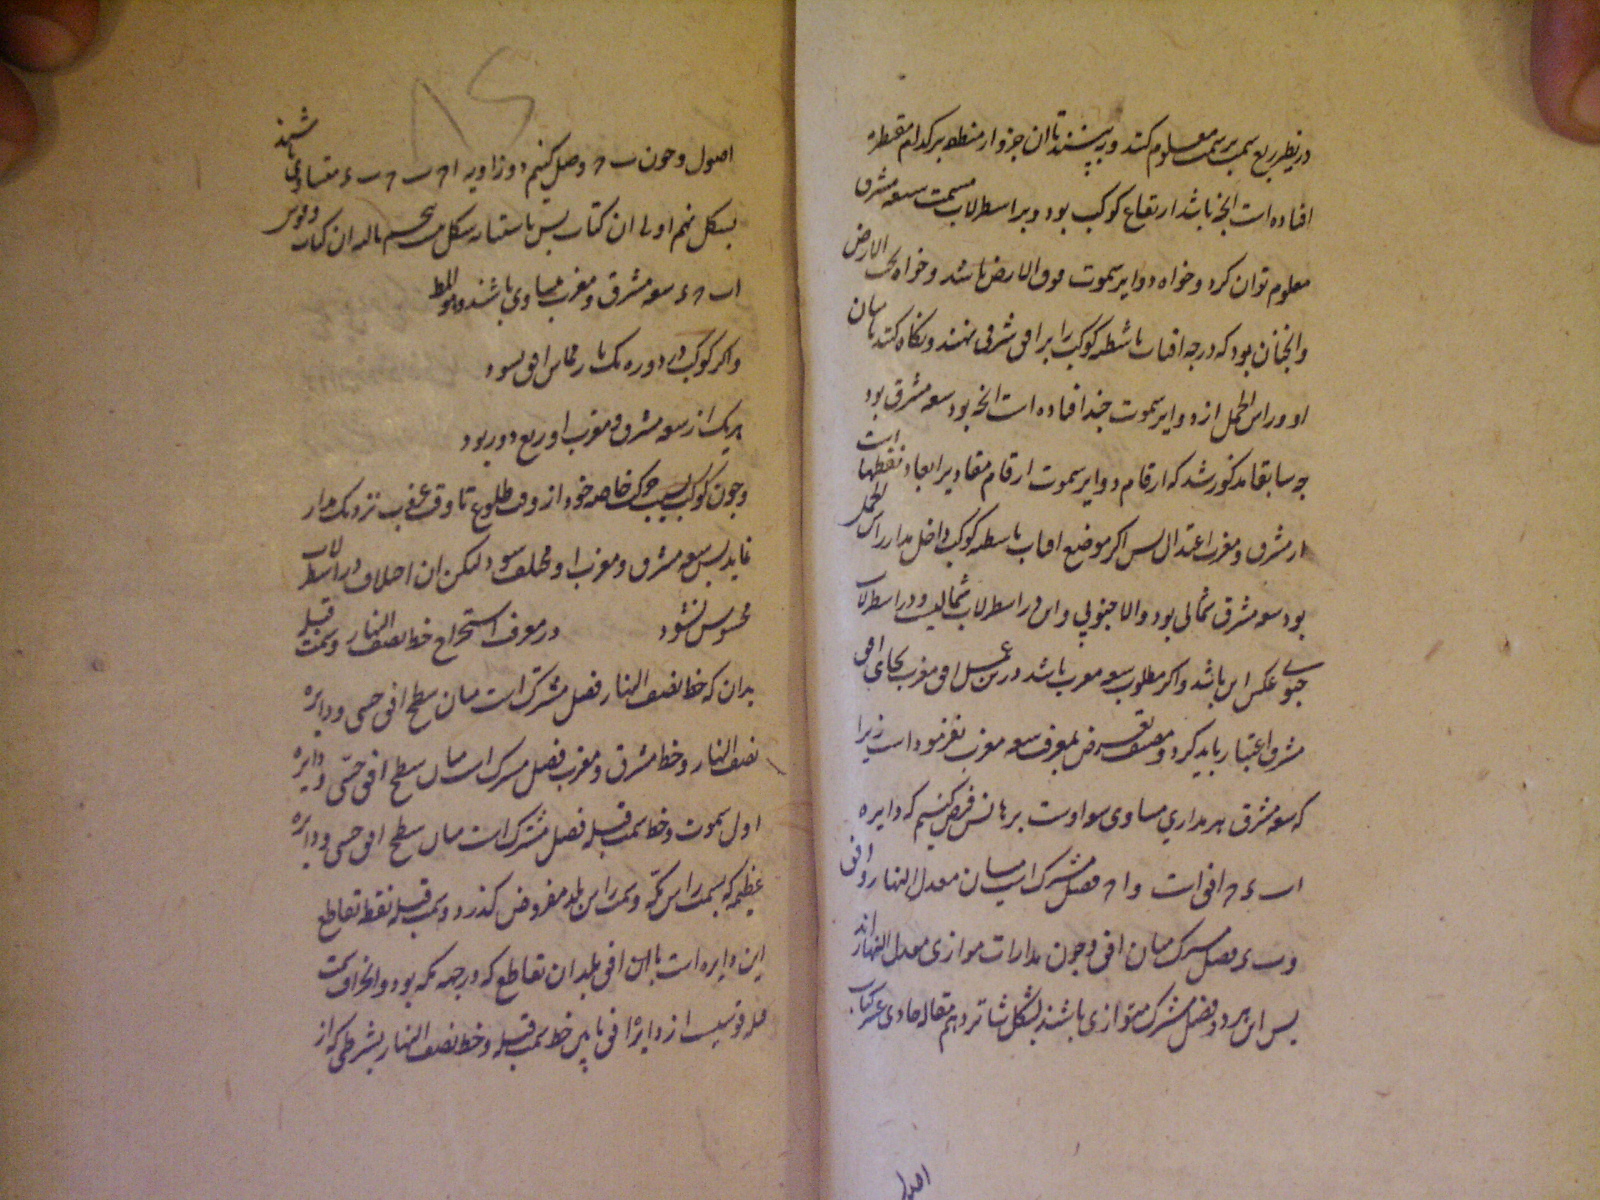 در نظیر ربع سمت بر سمت معلوم کنند و ببینند تا ان جزو از منطقه بر کدام مقنطره
افتاده است انچه باشد ارتفاع کوکب بود و بر اسطرلاب مسمت سعه مشرق
معلوم توان کرد و خواه دوایر سموت فوق الارض باشد و خواه تحت الارض
و انچنان بود که درجه افتاب یا شظیه کوکب را بر افق شرقی نهند و نگاه کنند تا میان
او و راس الحمل از دوایر سموت چند افتاده است انچه بود سعه مشرق بود
چه سابقا مذکور شد که ارقام دوایر سموت ارقام مقادیر ابعاد نقطها است
از مشرق و مغرب اعتدال پس اگر موضع افتاب یا شظیه کوکب داخل مدار راس الحمل
بود سعه مشرق شمالی بود والا جنوبی و این در اسطرلاب شمالیست و در اسطرلاب
جنوبی عکس این باشد و اگر مطلوب سعه مغرب باشد در عمل افق مغرب بجای افق
مشرق اعتبار باید کرد و مصنف تعرض بمعرفت سعه مغرب نفرموده است زیرا
که سعه مشرق هر مداری مساوی سعه اوست برهانش فرض کنیم که دایره
ا ب ء ح افق است و ا ح فصل مشترک است میان معدل النهار و افق
و ب ء فصل مشترک میان افق و چون مدارات موازی معدل النهار اند
پس این هر دو فصل مشترک متوازی باشند بشکل شانزدهم مقاله حادی عشر کتاب
اصول
اصول و چون ب ح وصل کنیم دو زاویه ا ح ب ح ب ء متساوی باشند
بشکل نهم اولی ان کتاب پس باستبانه شکل ثالثه ان کتاب دو قوس
ا ب ح ء سعه مشرق و مغرب مساوی باشند و هو المط
و اگر کوکب در دوره یک بار مماس افق شود
هر یک از سعه مشرق و مغرب او ربع دور بود
و چون کوکب بسبب حرکت خاصه خود از وقت طلوع تا وقت غروب نزدیک مدار
نماید پس سعه مشرق و مغرب او مختلف شود لیکن ان اختلاف در اسطرلاب
محسوس نشود در معرفت استخراج خط نصف النهار و سمت قبله
بدان که خط نصف النهار فصل مشترک است میان سطح افق حسی و دایره
نصف النهار و خط مشرق و مغرب فصل مشترک است میان سطح افق حسی و دایره
اول سموت و خط سمت قبله فصل مشترک است میان سطح افق حسی و دایره
عظیمه که بسمت راس مکه و سمت راس بلد مفروض گذرد و سمت قبله نقطه تقاطع
این دایره است با افق بلد ان تقاطع که در جهه مکه بود و انحراف سمت
قبله قوسیست از دایره افق ما بین خط سمت قبله و خط نصف النهار بشرطی که از